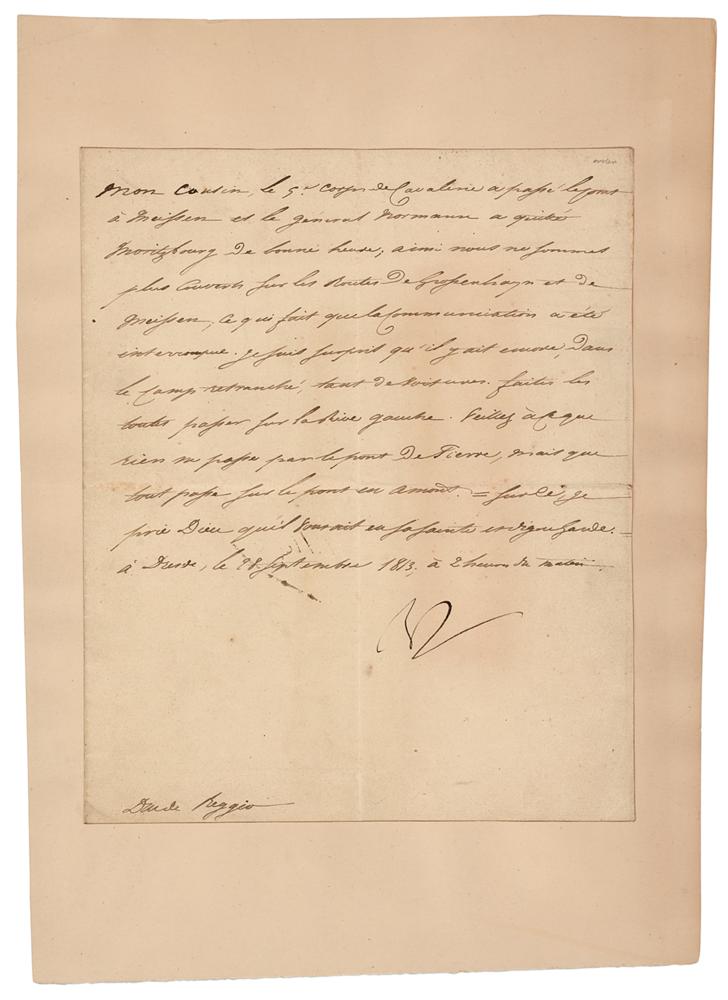 Mon Cousin, le 5e. Corps de Cavalerie a passé le pont
à Meissen et le général Normann a quitté
Moritzbourg de bonne heure; ainsi nous ne sommes
plus Couverts sur les Routes de Grossenhayn et de
Meissen, ce qui fait que la Communication a été
interrompue. Je suis surpris qu'il y ait encore, Dans
le Camp retranché, tant de voitures. faites les
toutes passer sur la Rive gauche. Veillez à ce que
rien ne passe par le pont De Pierre, mais que
tout passe sur le pont en Amont. = Sur ce, je
prie Dieu qu'il vous ait en sa sainte et digne Garde. =
à Dresde, le 28. Septembre 1813, à 2 heures du matin.
N
Duc de Reggio